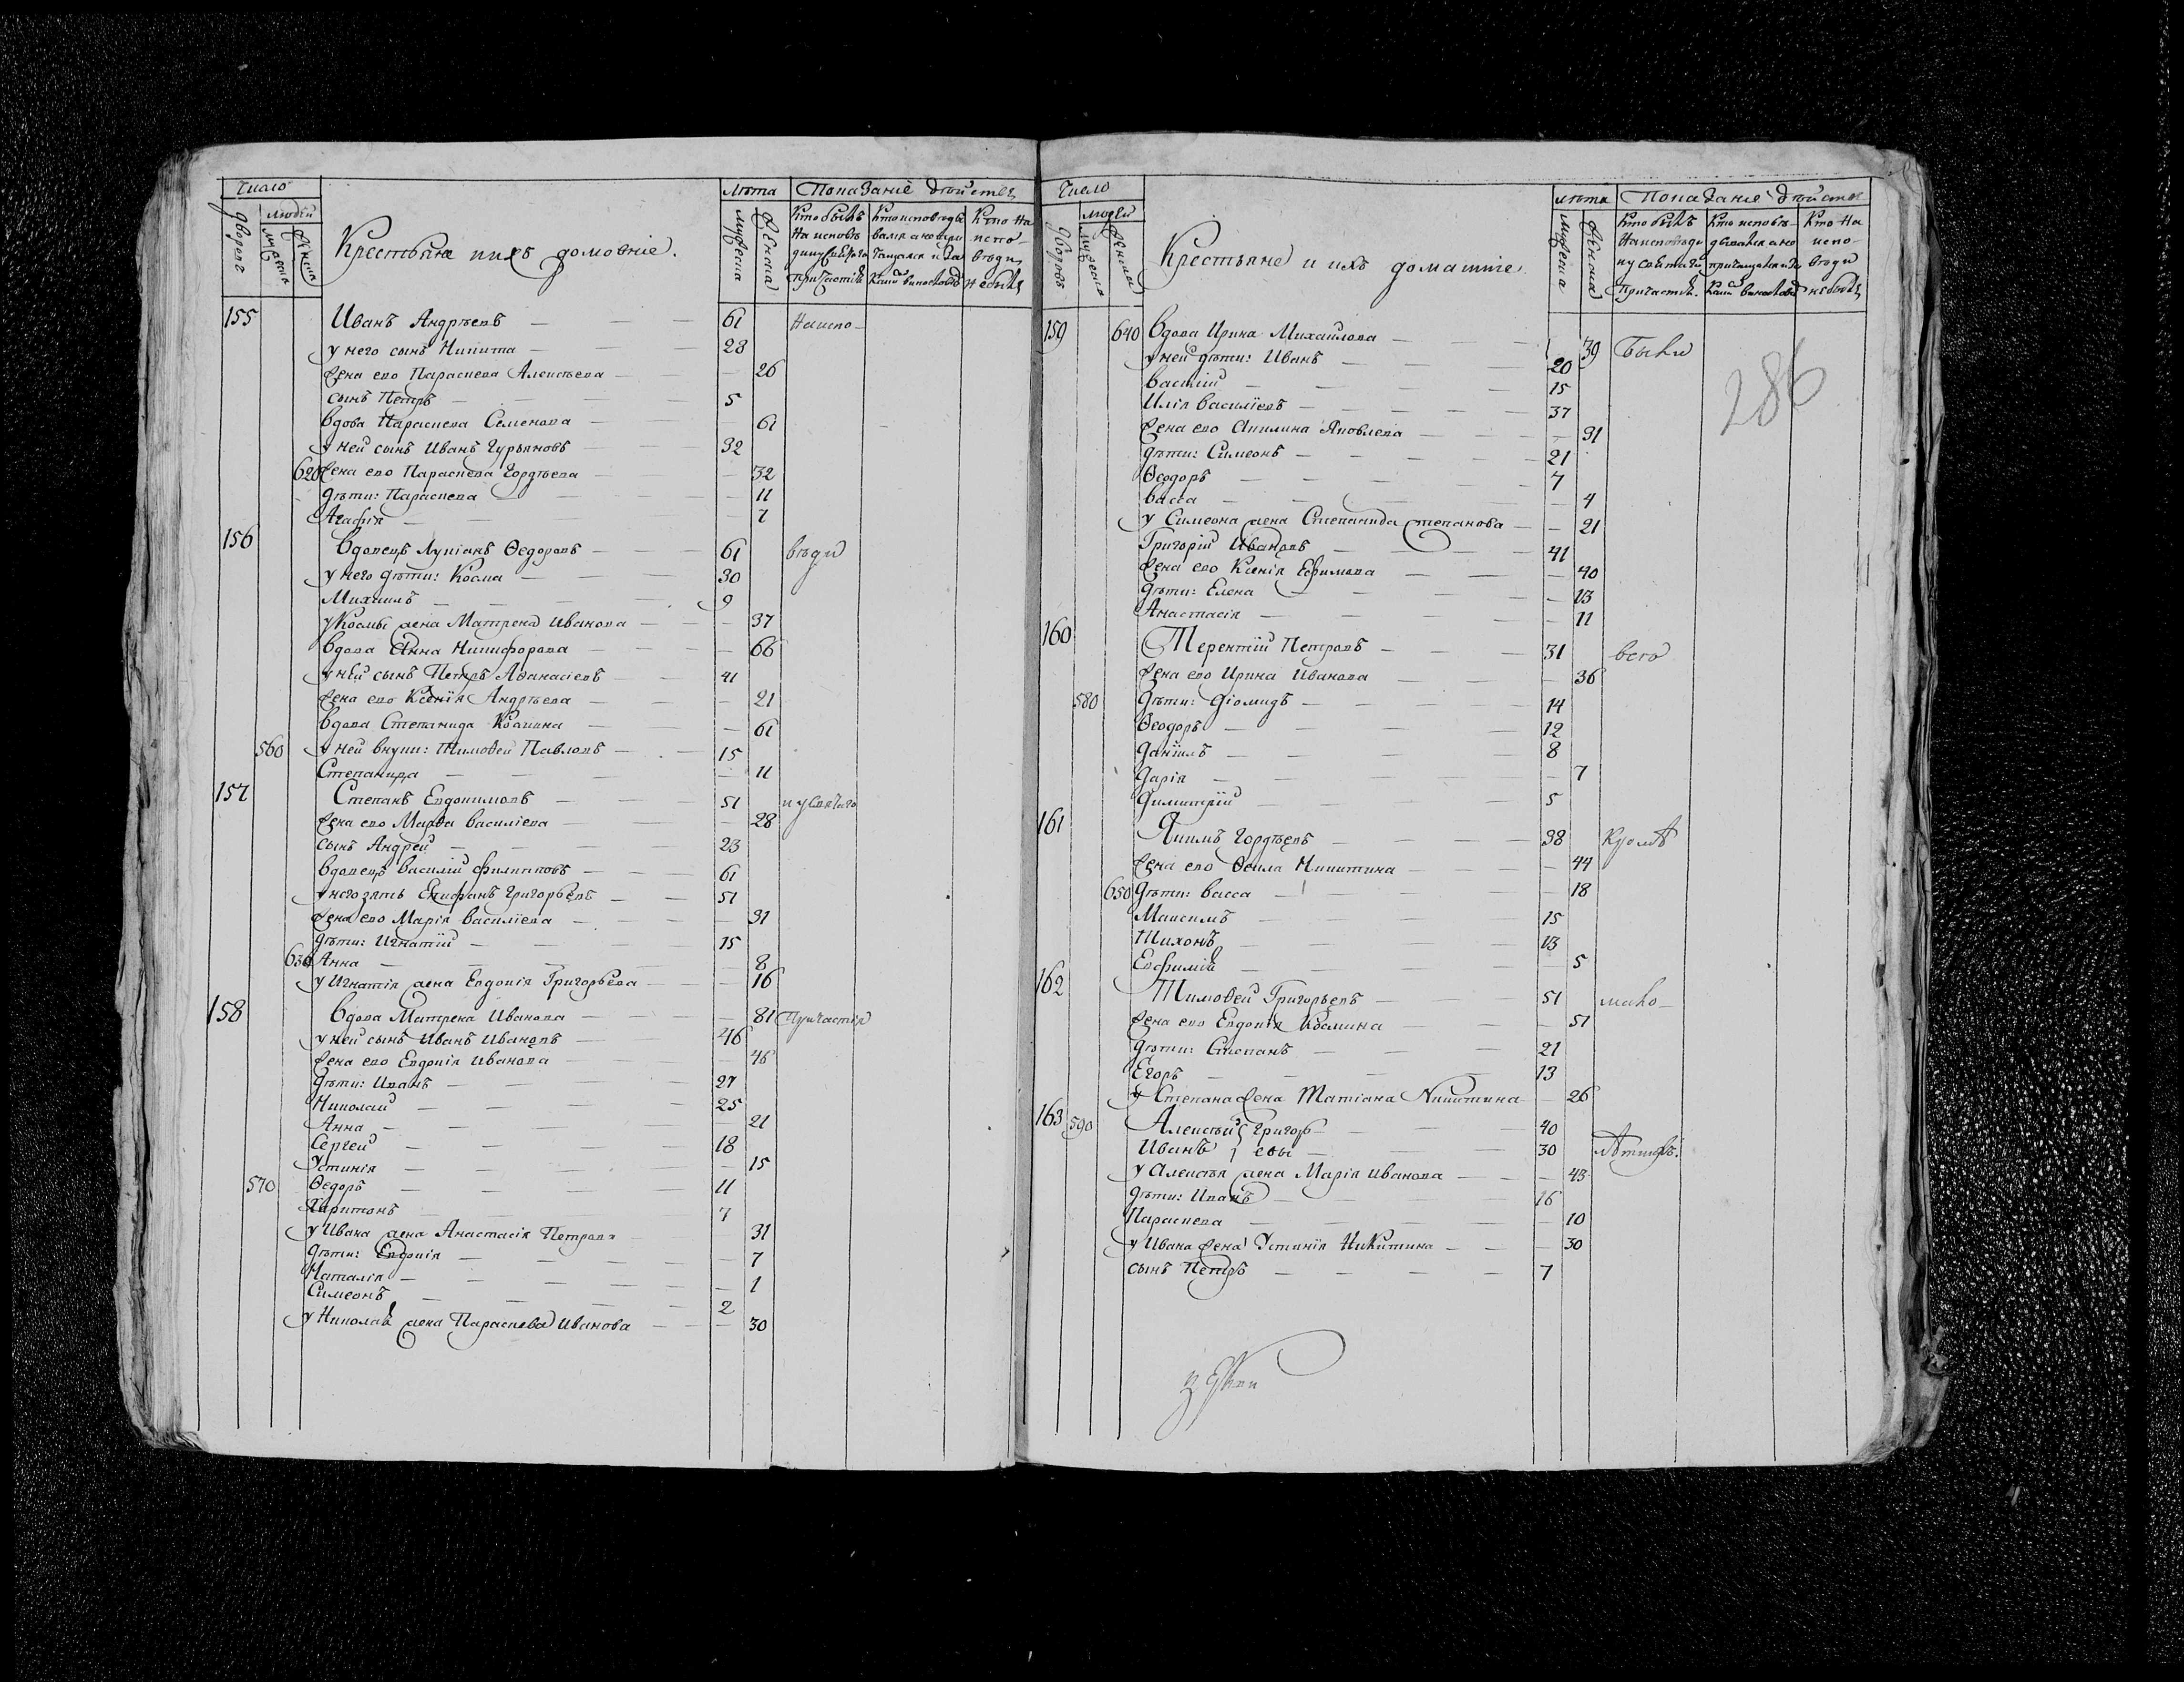 Число
Людей
дворовъ
мужеска
женска
Крестьяне и ихъ домовніе.
Лѣта
мужеска
женска
Показаніе дѣйства
Кто былъ на исповѣди и у святаго причастія
Кто исповѣдывался а не причащался и за какимъ винословіемъ
Кто на исповѣди не былъ
155 Иванъ Андрѣевъ — 61 На испо-
у него сынъ Никита — 28
жена ево Параскева Алексѣева — 26
сынъ Петръ — 5
Вдова Параскева Семенова — 61
у ней сынъ Иванъ Гурьяновъ — 32
620 жена ево Параскева Гордѣева — 32
дѣти: Параскева — 11
Агафія — 7
156 Вдовецъ Лукіанъ Ѳедоровъ — 61 вѣди
у него дѣти: Косма — 30
Михаилъ — 9
у Космы жена Матрена Иванова — 37
Вдова Анна Никифорова — 66
у ней сынъ Петръ Аѳанасіевъ — 41
жена ево Ксенія Андрѣева — 21
Вдова Степанида Козмина — 61
560 у ней внуки: Тимоѳей Павловъ — 15
Степанида — 11
157 Степанъ Евдокимовъ — 51 и у святаго
жена ево Марѳа Василіева — 28
сынъ Андрей — 23
Вдовецъ Василій Филипповъ — 61
у него зять Епифанъ Григорьевъ — 51
жена ево Марія Василіева — 31
дѣти: Игнатій — 15
630 Анна — 8
у Игнатія жена Евдокія Григорьева — 16
158 Вдова Матрена Иванова — 81 Причастія
у ней сынъ Иванъ Ивановъ — 46
жена ево Евдокія Иванова — 46
дѣти: Иванъ — 27
Николай — 25
Анна — 21
Сергей — 18
Устинія — 15
570 Ѳедоръ — 11
Харитонъ — 7
у Ивана жена Анастасія Петрова 31
дѣти: Евдокія — 7
Наталія — 1
Симеонъ — 2
у Николая жена Параскева Иванова — 30
Число
Людей
дворовъ
мужеска
женска
Крестьяне и ихъ домашніе
лѣта
мужеска
женска
Показаніе дѣйства
Кто былъ на исповѣди и у святаго причастія.
Кто исповѣдывался а не причащался и за какимъ винословіемъ
Кто на исповѣди не былъ
286
159 640 Вдова Ирина Михаилова — 39 Были
у ней дѣти: Иванъ — 20
Василій — 15
Илія Василіевъ — 37
жена ево Акилина Яковлева — 31
дѣти: Симеонъ — 21
Ѳеодоръ — 7
Васса — 4
у Симеона жена Степанида Степанова — 21
Григорій Ивановъ — 41
жена ево Ксенія Ефимова — 40
дѣти: Елена — 13
Анастасія — 11
160 Терентій Петровъ — 31 всѣ
жена ево Ирина Иванова — 36
580 дѣти: Діомидъ — 14
Ѳеодоръ — 12
Даніилъ — 8
Дарія — 7
Димитрій — 5
161 Якимъ Гордѣевъ — 38 кромѣ
жена ево Ѳекла Никитина — 44
650 дѣти: Васса — 18
Максимъ — 15
Тихонъ — 13
Евфимія — 5
162 Тимоѳей Григорьевъ — 51 мало-
жена ево Евдокія Козмина — 51
дѣти: Степанъ — 21
Егоръ — 13
у Степана жена Татіана Никитина — 26
163 590 Алексѣй Григорь — 40
Иванъ евы — 30 лѣтнихъ.
у Алексѣя жена Марія Иванова — 43
дѣти: Иванъ — 16
Параскева — 10
у Ивана жена Устинія Никитина — 30
сынъ Петръ — 7